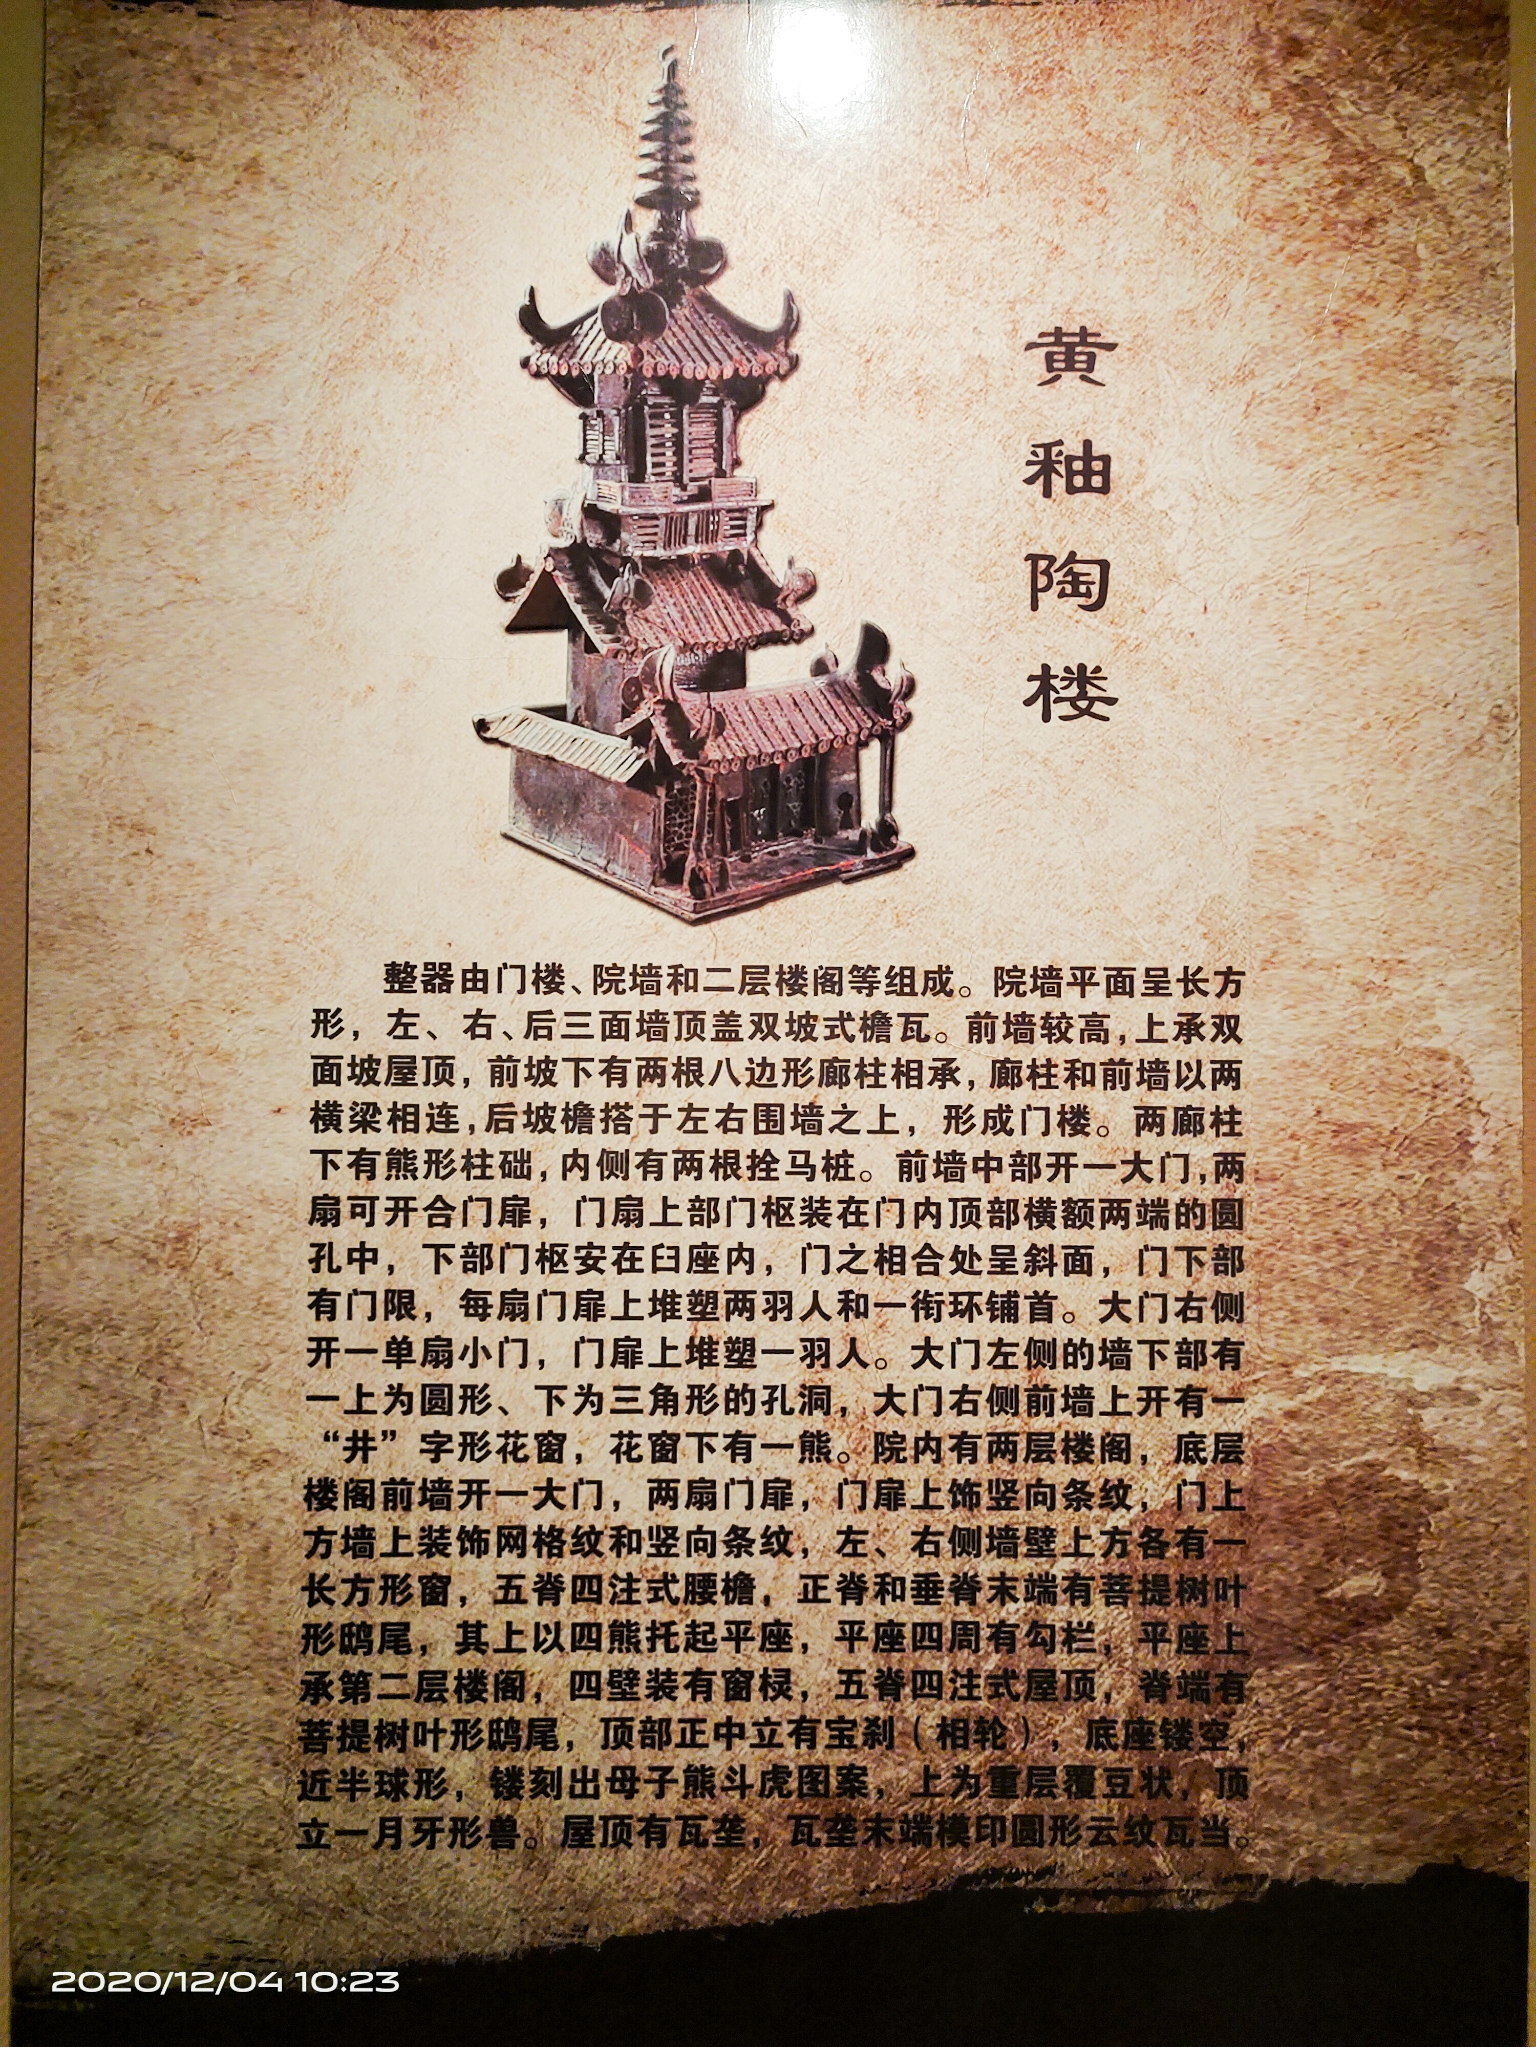 黄釉陶楼
整器由门楼、院墙和二层楼阁等组成。院墙平面呈长方
形，左、右、后三面墙顶盖双坡式檐瓦。前墙较高，上承双
面坡屋顶，前坡下有两根八边形廊柱相承，廊柱和前墙以两
横梁相连，后坡檐搭于左右围墙之上，形成门楼。两廊柱
下有熊形柱础，内侧有两根拴马桩。前墙中部开一大门，两
扇可开合门扉，门扇上部门枢装在门内顶部横额两端的圆
孔中，下部门枢安在臼座内，门之相合处呈斜面，门下部
有门限，每扇门扉上堆塑两羽人和一衔环铺首。大门右侧
开一单扇小门，门扉上堆塑一羽人。大门左侧的墙下部有
一上为圆形、下为三角形的孔洞，大门右侧前墙上开有一
“井”字形花窗，花窗下有一熊。院内有两层楼阁，底层
楼阁前墙开一大门，两扇门扉，门扉上饰竖向条纹，门上
方墙上装饰网格纹和竖向条纹，左、右侧墙壁上方各有一
长方形窗，五脊四注式腰檐，正脊和垂脊末端有菩提树叶
形鸱尾，其上以四熊托起平座，平座四周有勾栏，平座上
承第二层楼阁，四壁装有窗棂，五脊四注式屋顶，脊端有
菩提树叶形鸱尾，顶部正中立有宝刹（相轮），底座镂空，
近半球形，镂刻出母子熊斗虎图案，上为重层覆豆状，顶
立一月牙形兽。屋顶有瓦垄，瓦垄末端模印圆形云纹瓦当。
2020/12/04 10:23